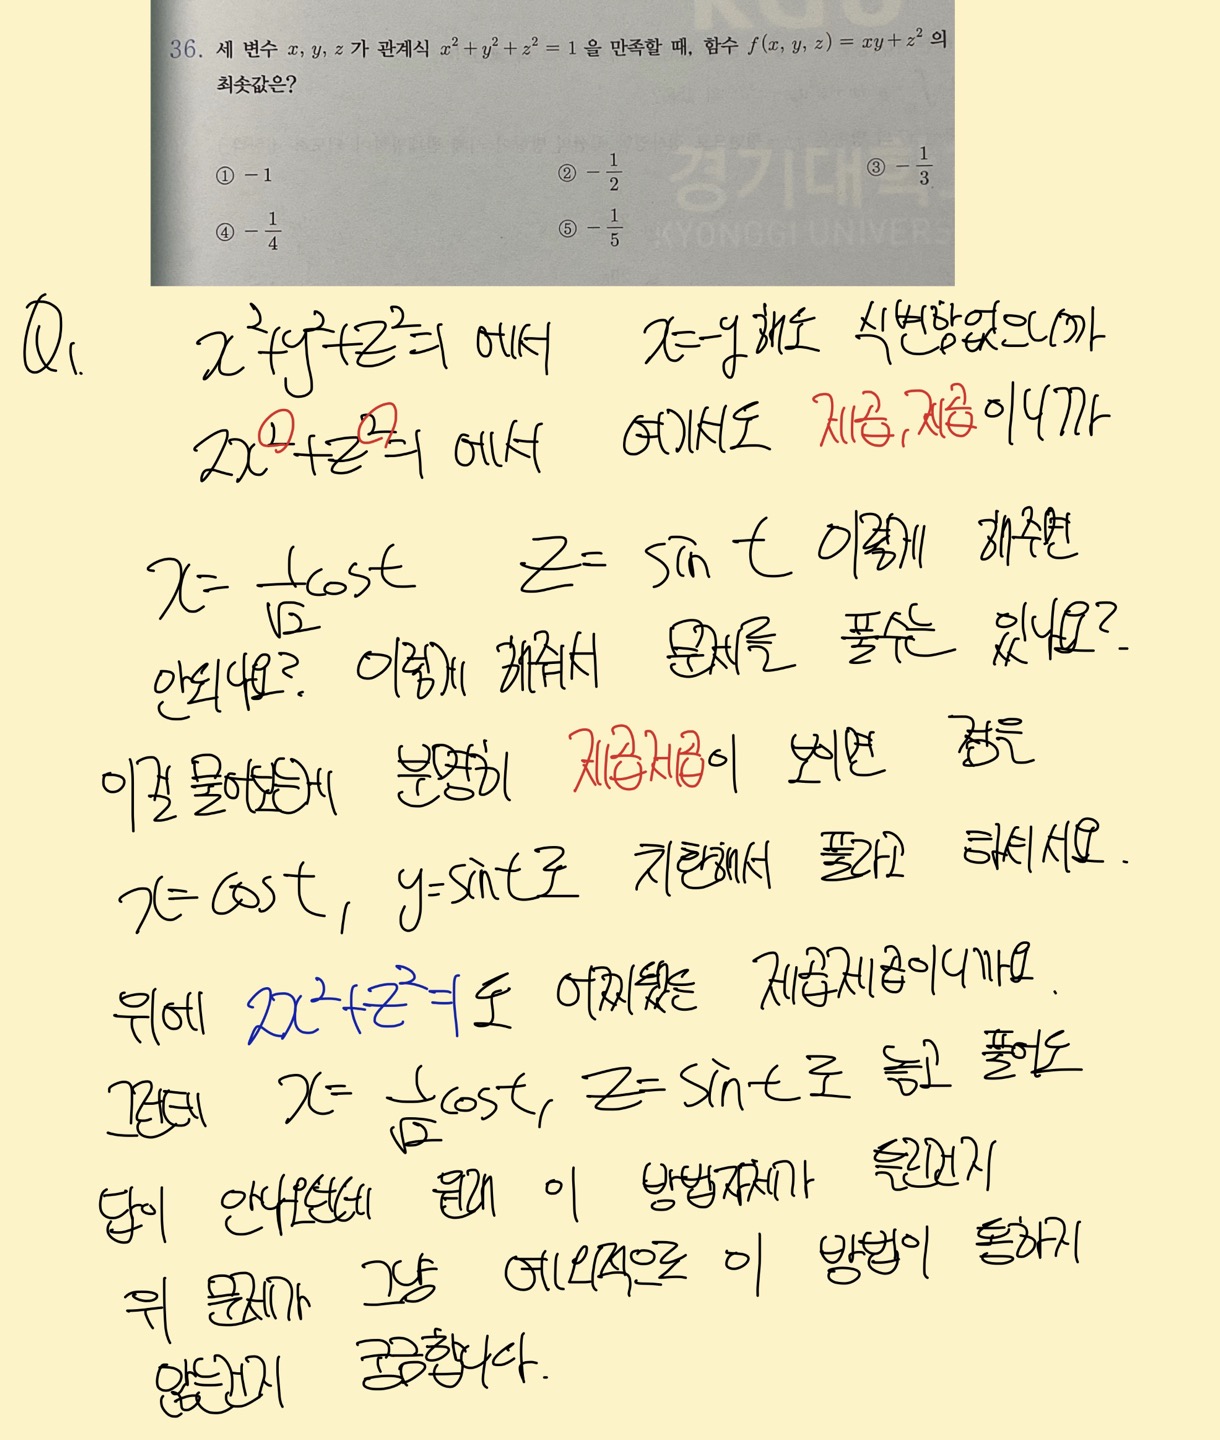 KGU
36. 세 변수 x, y, z 가 관계식 x² + y² + z² = 1 을 만족할 때, 함수 f(x, y, z) = xy + z² 의
최솟값은?
① -1 ② -1/2 ③ -1/3
④ -1/4 ⑤ -1/5
경기대학
KYONGGI UNIVERS
Q1. x²+y²+z²=1 에서 x=-y 해도 식변함없으니까
2x²+z²=1 에서 여기서도 제곱,제곱이니까
x= 1/√2 cost z= sin t 이렇게 해주면
안되나요? 이렇게 해줘서 문제를 풀수는 있나요?
이걸 물어보는게 분명히 제곱제곱이 보이면 점을
x=cost, y=sint로 치환해서 풀라고 하셔서요.
위에 2x²+z²=1도 어찌됐든 제곱제곱이니까요.
그런데 x= 1/√2 cost, z=sint로 놓고 풀어도
답이 안나오는데 원래 이 방법자체가 틀린건지
위 문제가 그냥 예외적으로 이 방법이 통하지
않는건지 궁금합니다.